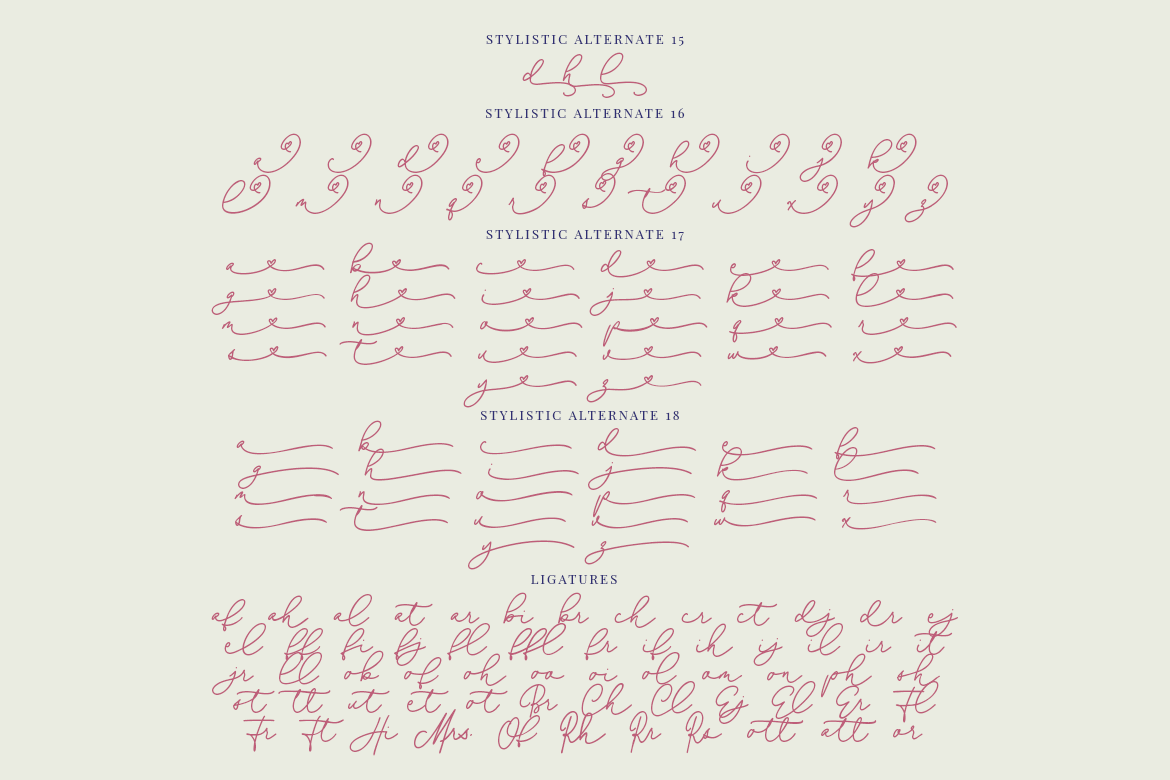 STYLISTIC ALTERNATE 15
d h l
STYLISTIC ALTERNATE 16
a c d e f g h i j k
l m n q r s t u x y z
STYLISTIC ALTERNATE 17
a b c d e f
g h i j k l
m n o p q r
s t u v w x
y z
STYLISTIC ALTERNATE 18
a b c d e f
g h i j k l
m n o p q r
s t u v w x
y z
LIGATURES
af ah al at ar bi br ch cr ct dj dr ej
el ff fi fj fl ffl fr if ih ij il ir it
jr ll ob of oh oa oi ol om on ph sh
st tt ut et ot Br Ch Cl Ej El Er Fl
Fr Ft Hi Mrs. Of Rh Rr Rs ott att or